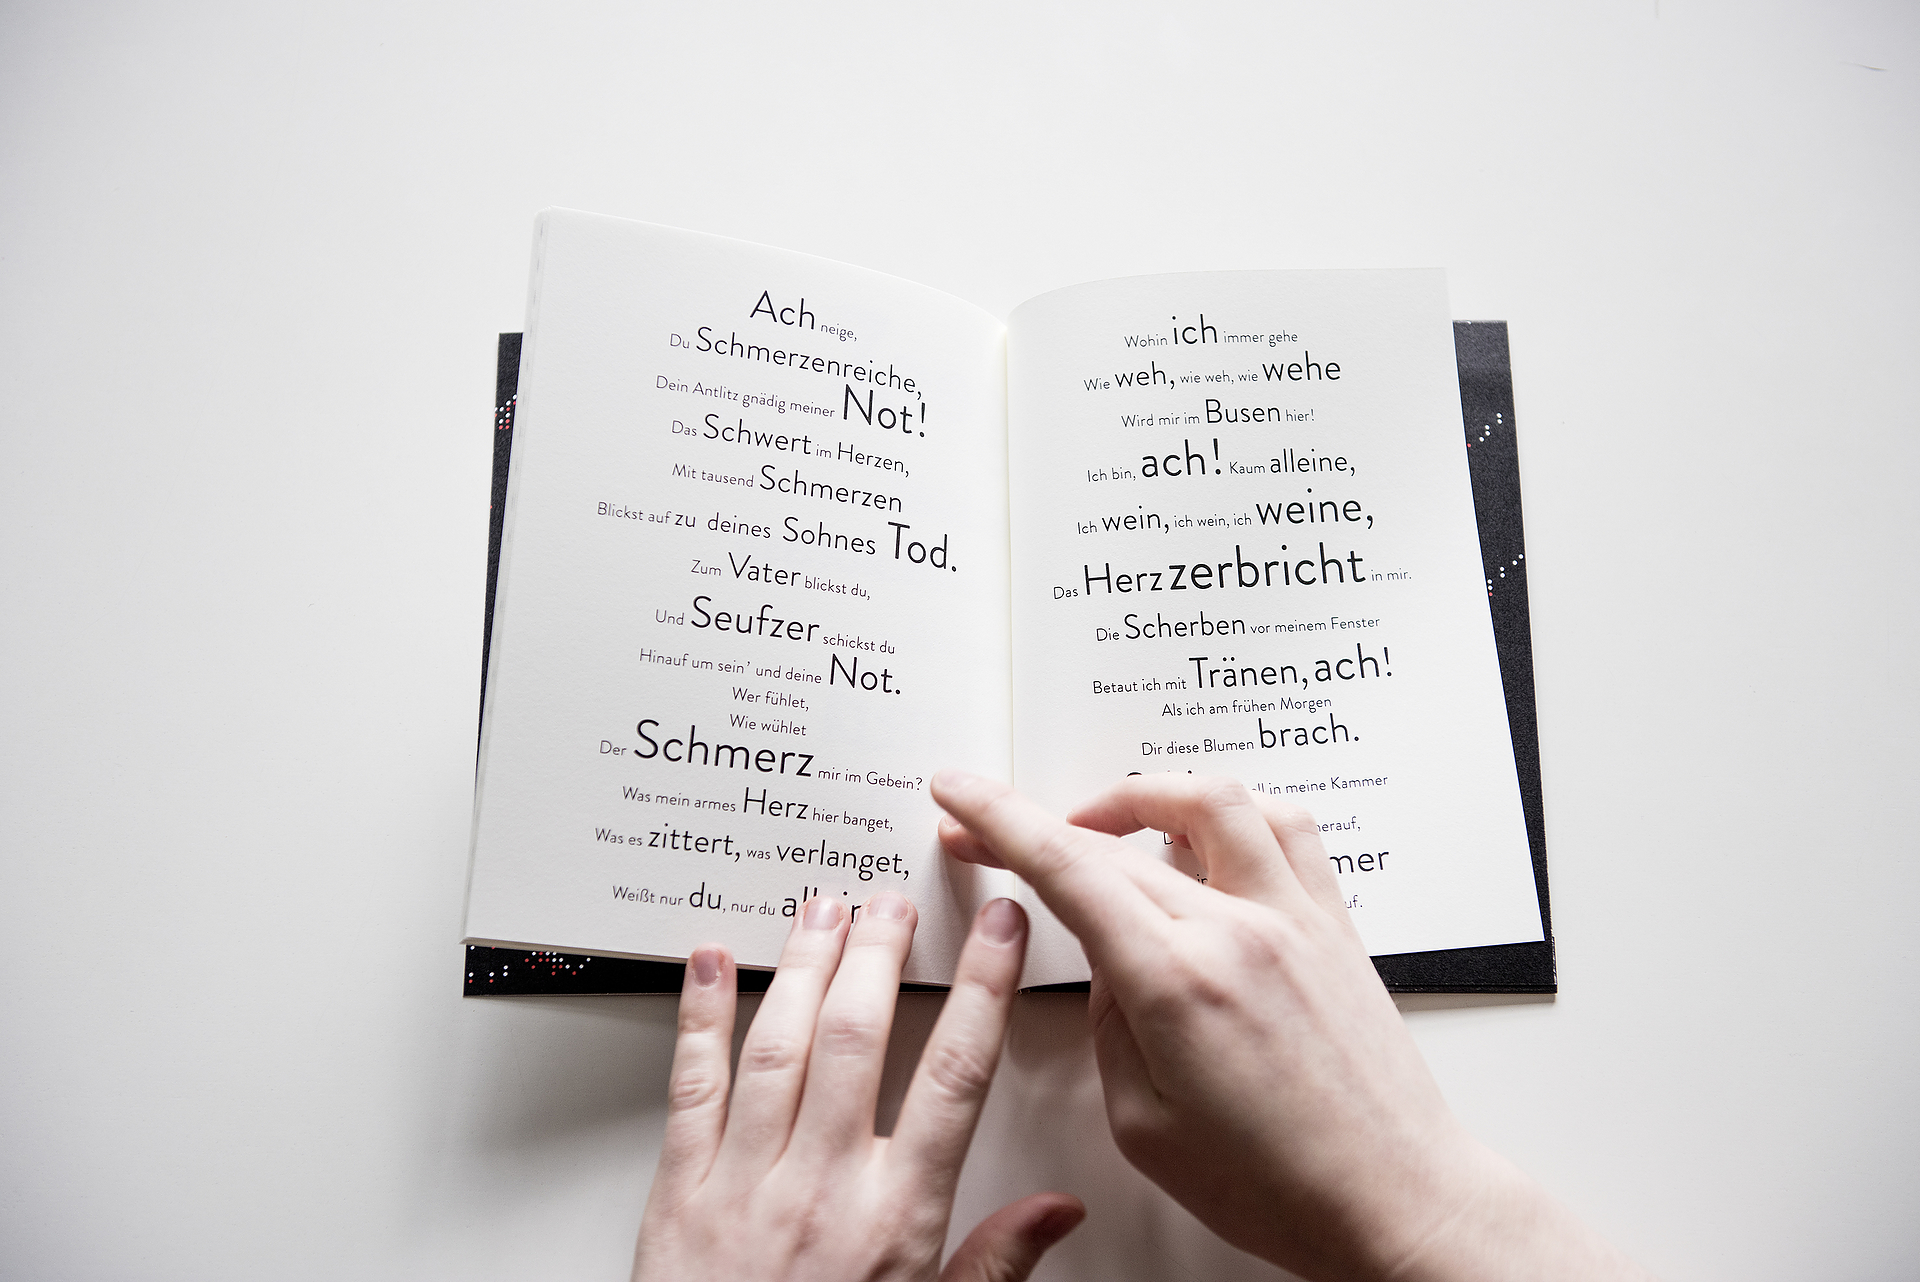 Ach neige,
Du Schmerzenreiche,
Dein Antlitz gnädig meiner Not!
Das Schwert im Herzen,
Mit tausend Schmerzen
Blickst auf zu deines Sohnes Tod.
Zum Vater blickst du,
Und Seufzer schickst du
Hinauf um sein’ und deine Not.
Wer fühlet,
Wie wühlet
Der Schmerz mir im Gebein?
Was mein armes Herz hier banget,
Was es zittert, was verlanget,
Weißt nur du, nur du
Wohin ich immer gehe
Wie weh, wie weh, wie wehe
Wird mir im Busen hier!
Ich bin, ach! Kaum alleine,
Ich wein, ich wein, ich weine,
Das Herz zerbricht in mir.
Die Scherben vor meinem Fenster
Betaut ich mit Tränen, ach!
Als ich am frühen Morgen
Dir diese Blumen brach.
in meine Kammer